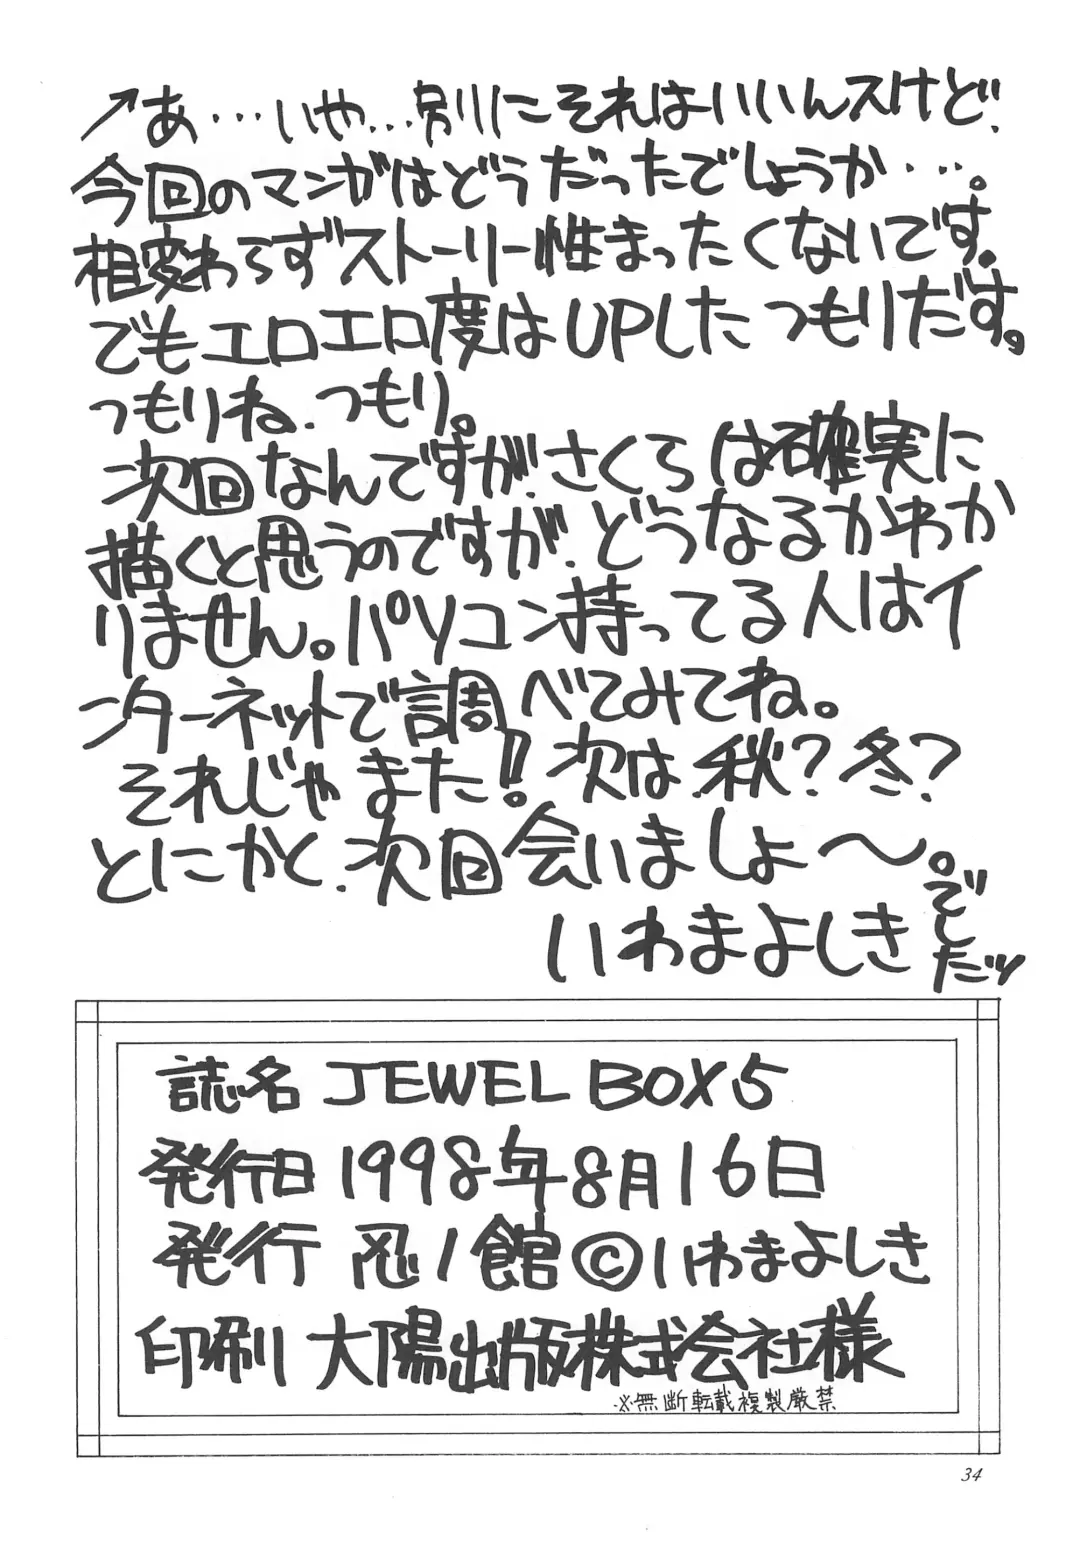 ↗あ…いや…別にそれはいいんスけど、
今回のマンガはどうだったでしょうか…。
相変わらずストーリー性まったくないです。
でもエロエロ度はUPしたつもりだす。
つもりね、つもり。
次回なんですが、さくらは確実に
描くと思うのですが、どうなるかわか
りません。パソコン持ってる人はイ
ンターネットで調べてみてね。
それじゃまた!!次は、秋?冬?
とにかく、次回会いましょ〜。
いわまよしき
でしたッ
誌名 JEWEL BOX5
発行日 1998年8月16日
発行 忍ノ館©いわまよしき
印刷 大陽出版株式会社様
※無断転載複製厳禁
34